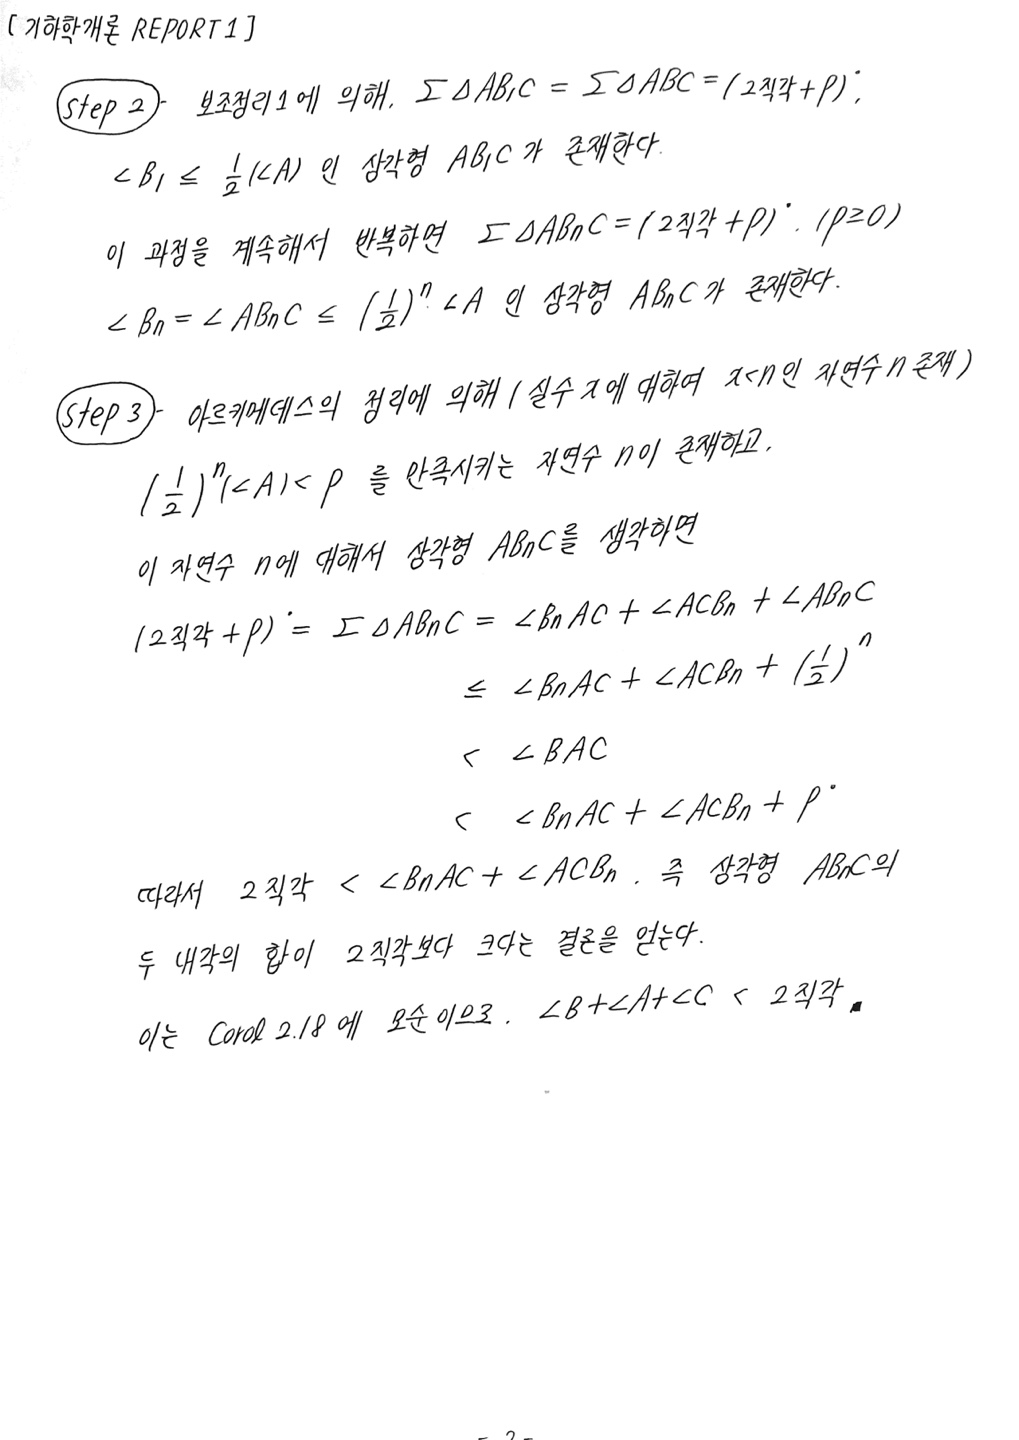 [기하학개론 REPORT 1]
Step 2 - 보조정리 1에 의해, Σ△AB₁C = Σ△ABC = (2직각+P)°,
∠B₁ ≤ ½(∠A) 인 삼각형 AB₁C가 존재한다.
이 과정을 계속해서 반복하면 Σ△ABnC = (2직각+P)°. (P≥0)
∠Bn = ∠ABnC ≤ (1/2)ⁿ ∠A 인 삼각형 ABnC가 존재한다.
Step 3 - 아르키메데스의 정리에 의해 (실수 x에 대하여 x<n인 자연수 n 존재)
(1/2)ⁿ(∠A) < P 를 만족시키는 자연수 n이 존재하고,
이 자연수 n에 대해서 삼각형 ABnC를 생각하면
(2직각+P)° = Σ△ABnC = ∠BnAC + ∠ACBn + ∠ABnC
≤ ∠BnAC + ∠ACBn + (1/2)ⁿ
< ∠BAC
< ∠BnAC + ∠ACBn + P°
따라서 2직각 < ∠BnAC + ∠ACBn. 즉 삼각형 ABnC의
두 내각의 합이 2직각보다 크다는 결론을 얻는다.
이는 Corol 2.18에 모순이므로, ∠B+∠A+∠C < 2직각 ■
- 2 -